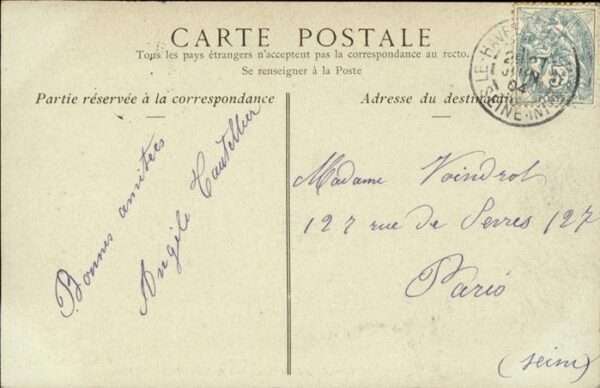 CARTE POSTALE
Tous les pays étrangers n'acceptent pas la correspondance au recto.
Se renseigner à la Poste
Partie réservée à la correspondance
Bonnes amitiés
Angèle Hautellier
Adresse du destinat
Madame Voindrot
127 rue de Sevres 127
Paris
(Seine)
LE HAVRE
SEINE-INF
04